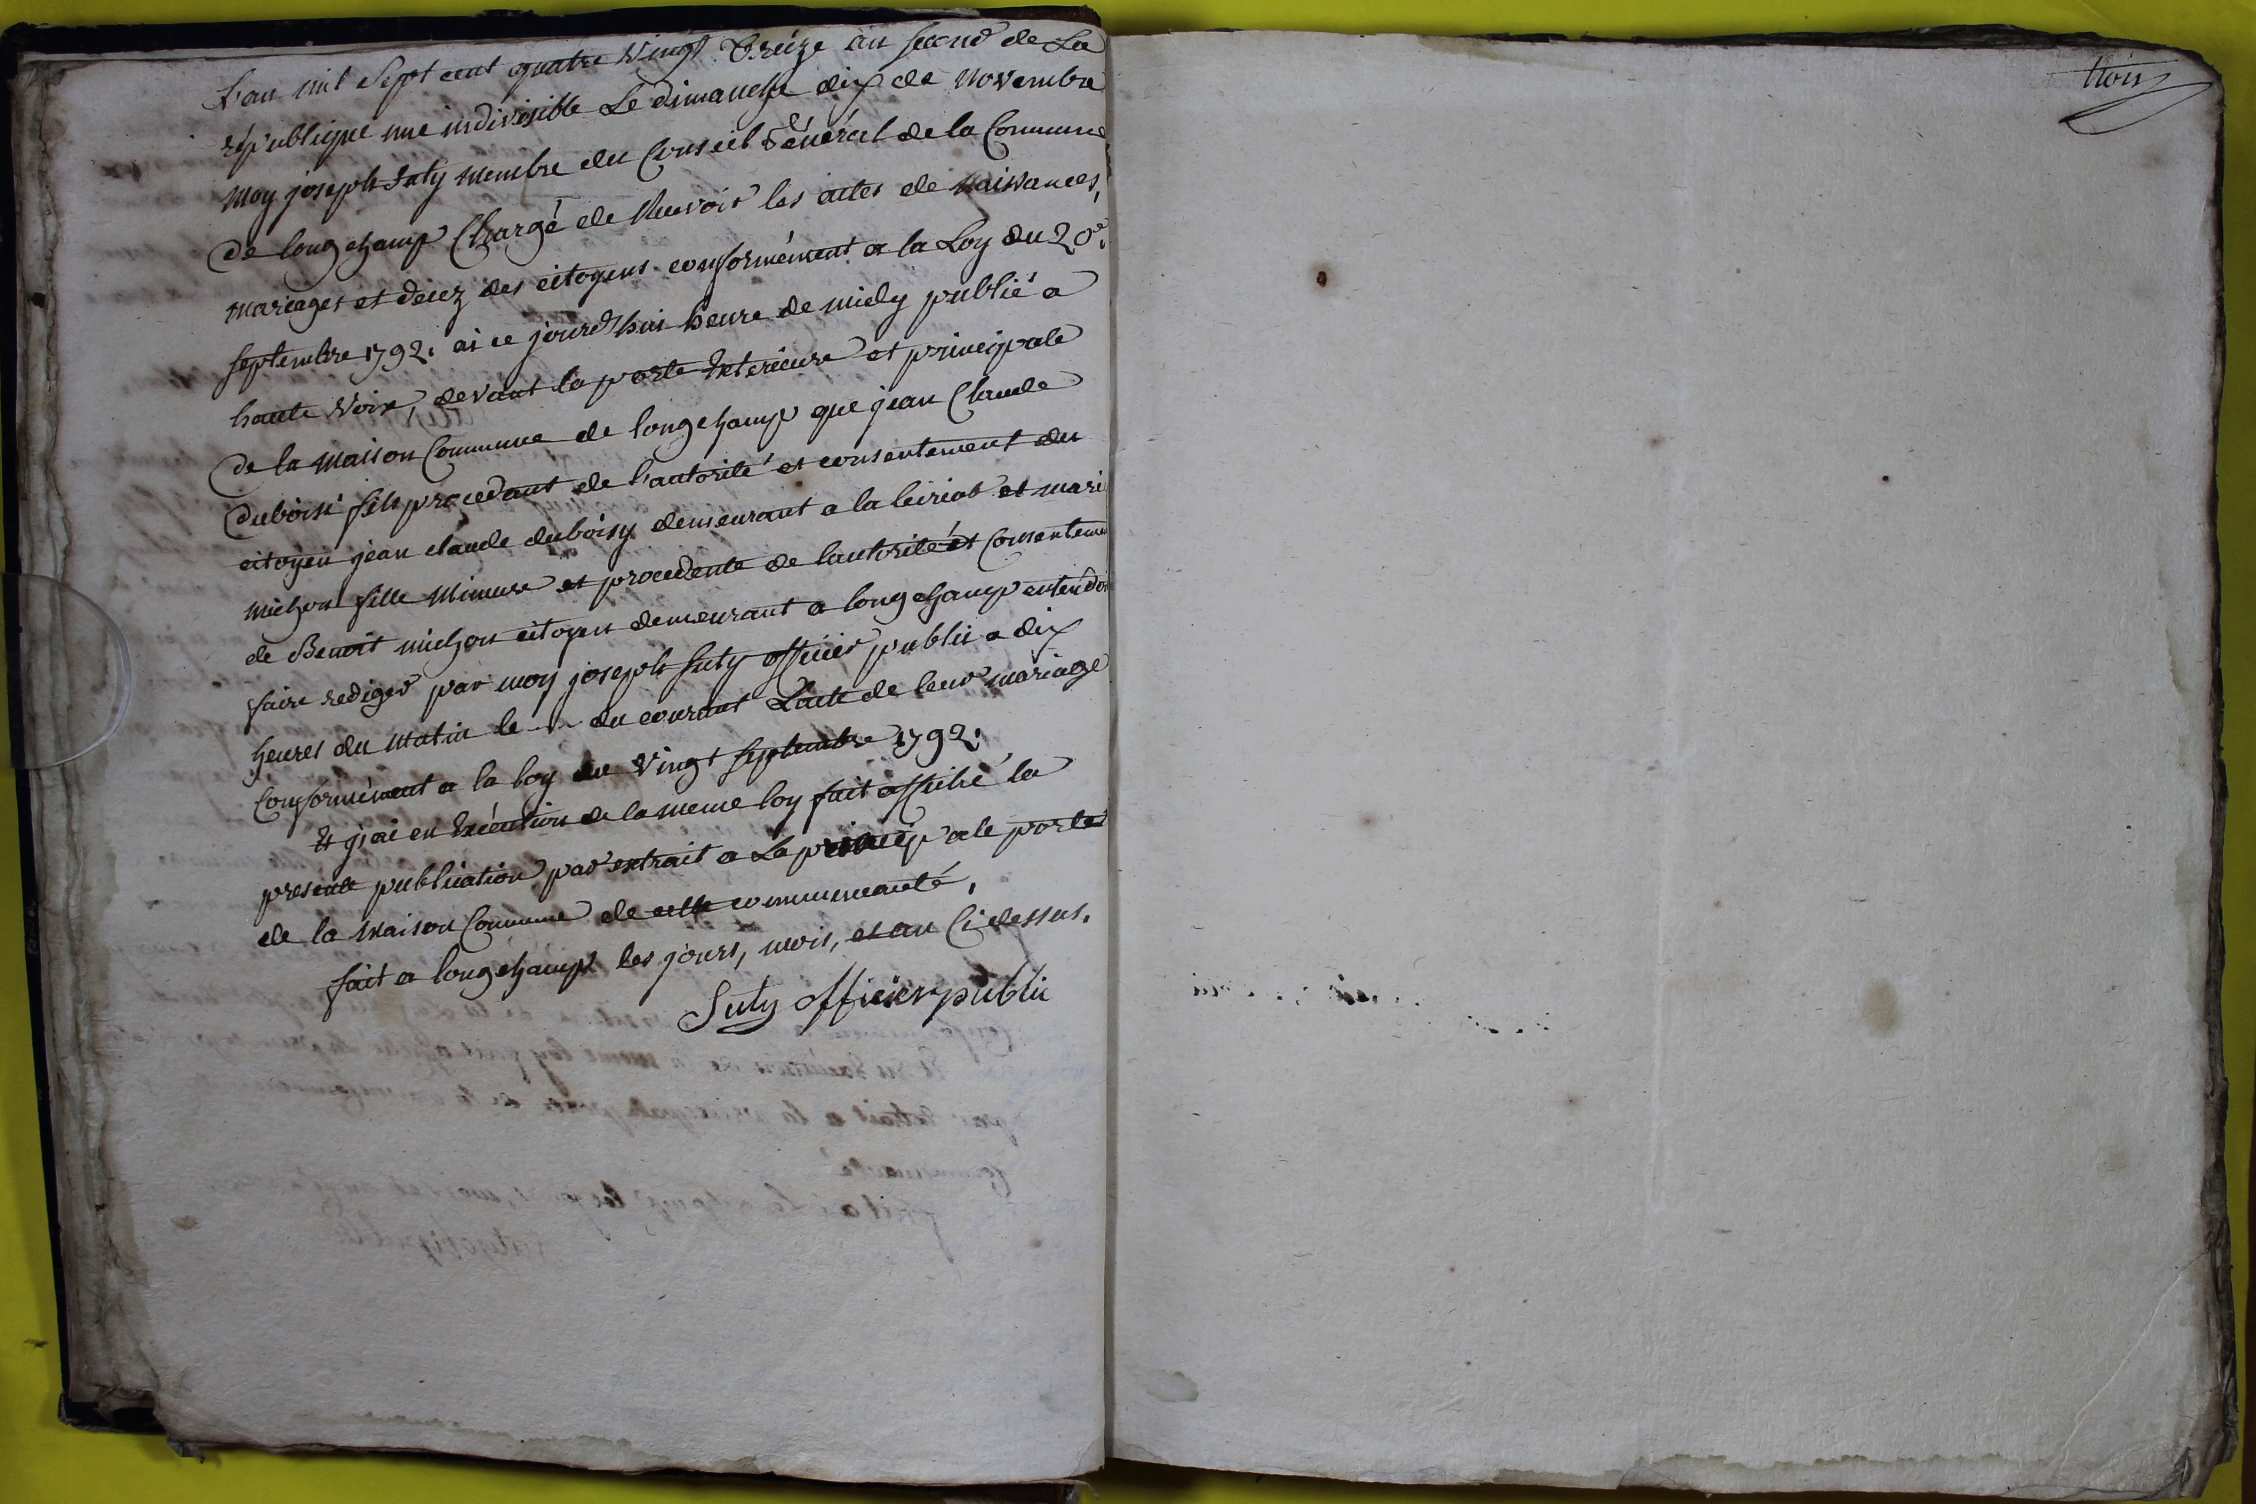 L'an mil Sept cent quatre Vingt Treize an second de La
république une indivisible Le dimanche dix de Novembre
Moy joseph Suty Membre du Conseil Général de la Commune
De longchamp Chargé de Recevoir les actes de Naissances,
Mariages et decez des citoyens conformément a la Loy du 20e.
septembre 1792. ai ce jourd'hui heure de midy publié a
haute Voix, devant la porte Exterieure et principale
De la Maison Commune de longchamp que jean Claude
Duboisi fils procedant de l'autorité et consentement du
citoyen jean claude duboisy demeurant a la et mari
Michon fille Mineure et procedente de l'autorité et Consenteme
de Benoit michon citoyen demeurant a longchamp entendoi
faire rediger par moy joseph Suty officier public a dix
heures du Matin le -- du courant L'acte de leur mariage
Conformément a la loy du Vingt septembre 1792.
Et j'ai en Exécution de la meme loy fait affiché la
presente publication par extrait a La principale porte
de la Maison Commune de cette communauté,
fait a longchamp les jours, mois, et an Ci dessus.
Suty officier public
trois